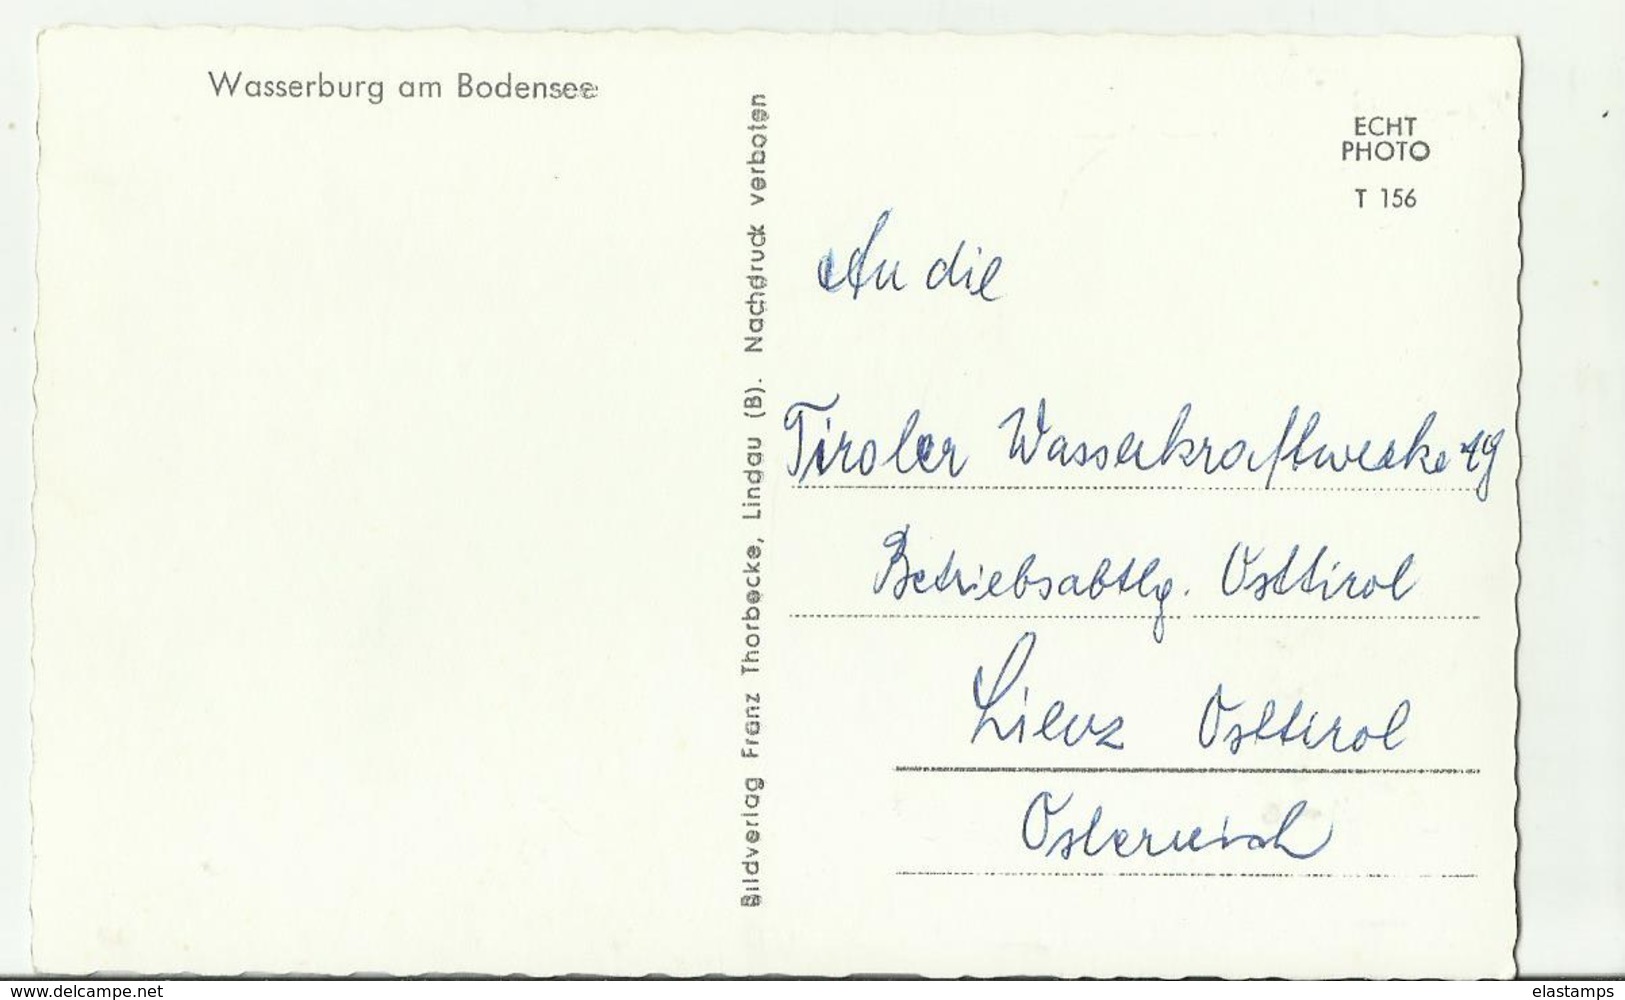 Wasserburg am Bodensee
Bildverlag Franz Thorbecke, Lindau (B). Nachdruck verboten
ECHT
PHOTO
T 156
An die
Tiroler Wasserkraftwerke AG
Betriebsabtlg. Osttirol
Lienz Osttirol
Österreich
www.delcampe.net
elastamps